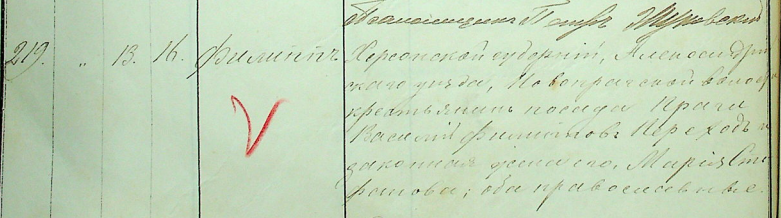 Помѣщикъ Петръ Жуковскій
219. " 13. 16. Филиппъ Херсонской губерніи, Александрій-
скаго уѣзда, Новопражской волости
крестьянинъ посада Праги
Василій Филипповъ Переходъ и
законная жена его, Марія Сте-
фанова; оба православные.